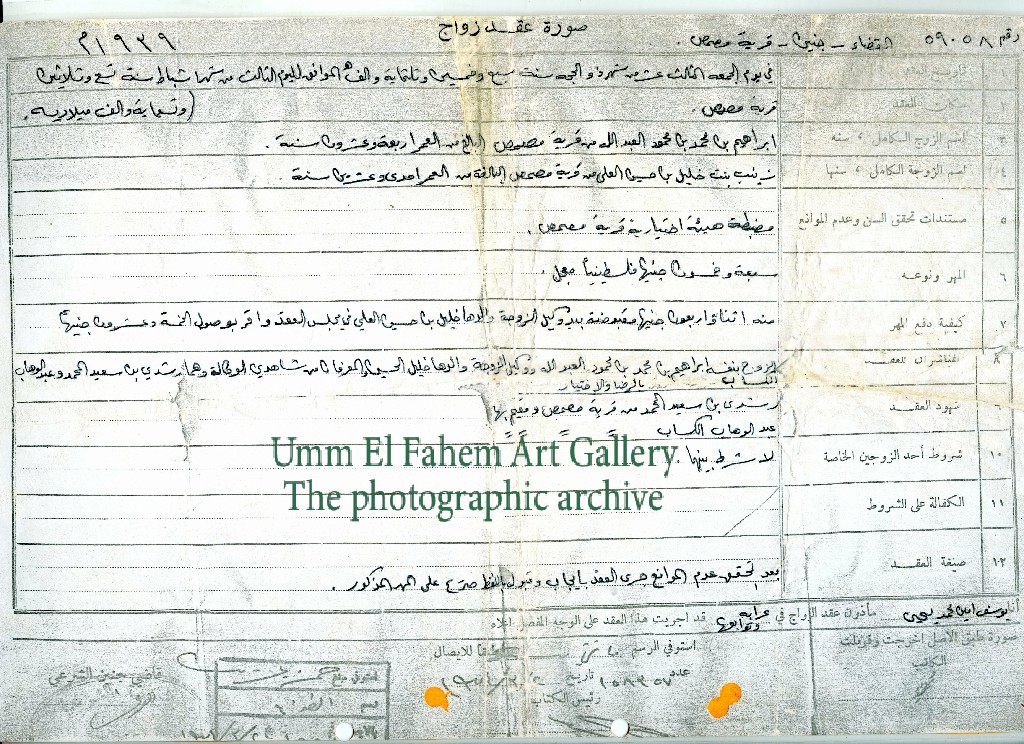 صورة عقد زواج
١٩٣٩م
رقم ٥٩٠٥٨ القضاء - جنين - قرية مصمص.
١ في يوم الجمعة الثالث عشر من شهر ذو الحجة سنة سبع وخمسين وثلثماية والف الموافق لليوم الثالث من شهر شباط سنة تسع وثلاثين
(وتسماية والف ميلادية.
٢ العقد قرية مصمص.
٣ اسم الزوج الكامل، سنه ابراهيم بن محمد بن محمود العبد الله من قرية مصمص البالغ من العمر اربعة وعشرون سنة.
٤ اسم الزوجة الكامل، سنها زينب بنت خليل بن حسين العلي من قرية مصمص البالغة من العمر احدى وعشرين سنة.
٥ مستندات تحقق السن وعدم الموانع مضبطة هيئة اختيارية قرية مصمص.
٦ المهر ونوعه سبعة وخمسون جنيها فلسطينياً معجل.
٧ كيفية دفع المهر منه اثنان واربعون جنيها مقبوضة بيد وكيل الزوجة والدها خليل بن حسين العلي في مجلس العقد واقر بوصول الخمسة وعشرون جنيهاً
٨ المباشران للعقد الزوج بنفسه ابراهيم بن محمد بن محمود العبد الله ووكيل الزوجة والدها خليل الحسين المعرفان من شاهدي الوكالة وهما رشدي بن سعيد المحمد وعبد الوهاب
الكساب بالرضا والاختيار
٩ شهود العقد رشدي بن سعيد المحمد من قرية مصمص ومقيم بها
عبد الوهاب الكساب
١٠ شروط أحد الزوجين الخاصة لا شرط بينهما.
Umm El Fahem Art Gallery
The photographic archive
١١ الكفالة على الشروط
١٢ صيغة العقد بعد تحقق عدم الموانع جرى العقد بايجاب وقبول بالفظ صريح على المهر المذكور.
أنا يوسف امين محمد يحيى مأذون عقد الزواج في عرابه وتوابعها قد اجريت هذا العقد على الوجه المفصل اعلاه
صورة طبق الاصل اخرجت وقوبلت
الكاتب
استوفي الرسم طبقا للايصال
عدد ١٥٨٣٥٧ تاريخ
رئيس الكتاب
قاضي جنين الشرعي